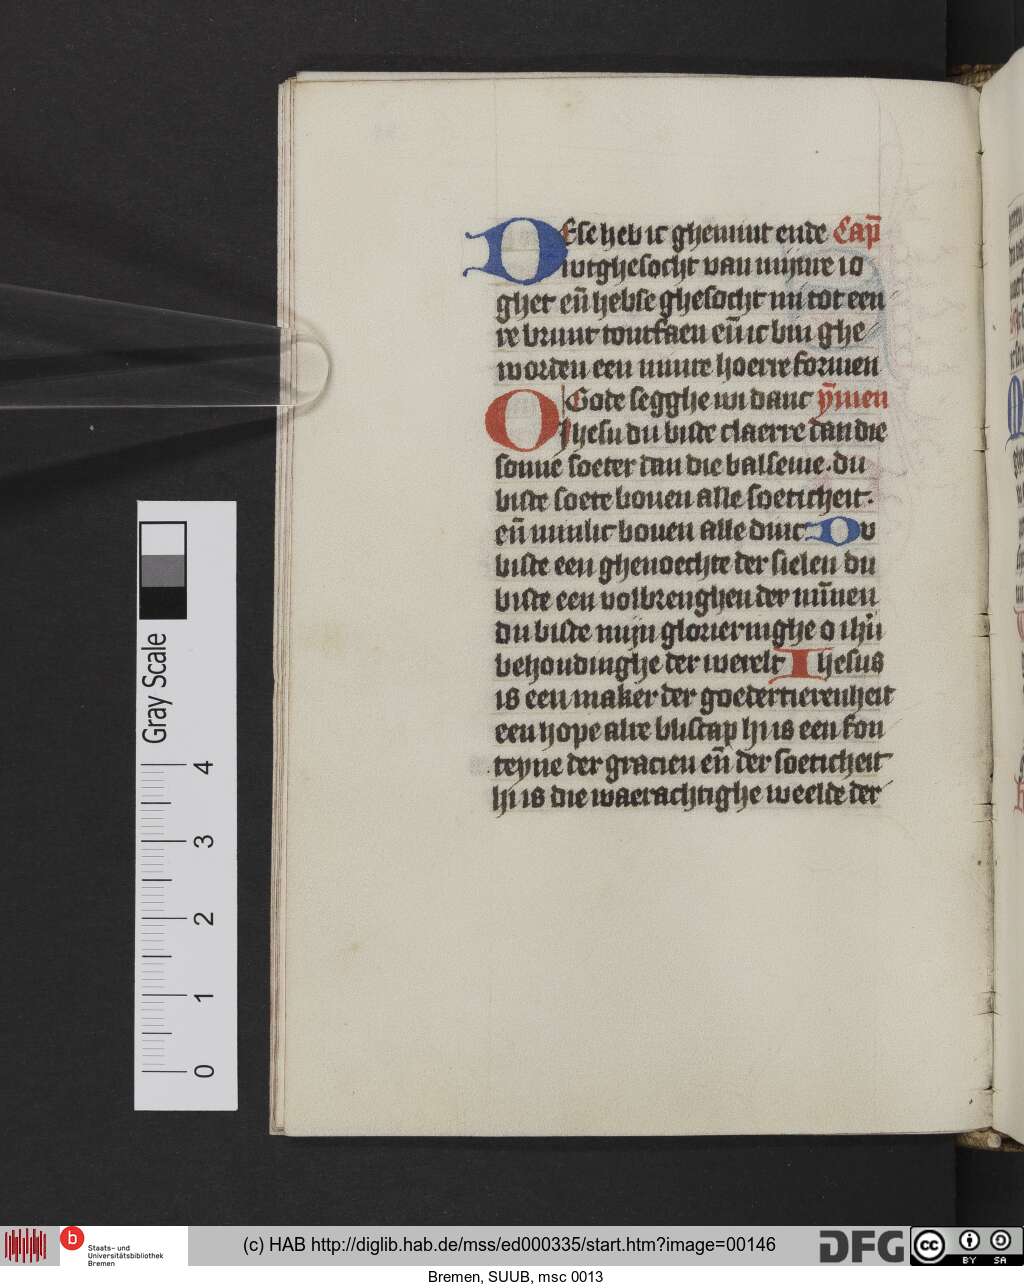 DEse heb ic ghemint ende Cap̄
wtghesocht van mijnre io
ghet eñ hebse ghesocht mi tot een
re bruut tontfaen eñ ic bin ghe
worden een minre hoerre formen
O Gode segghe wi danc ȳmen
Jhesu du biste claerre dan die
sonne soeter dan die balseme. du
biste soete bouen alle soeticheit.
eñ minlic bouen alle dinc Du
biste een ghenoechte der sielen du
biste een volbrenghen der min̄en
du biste mijn glorieringhe o ihū
behoudinghe der werelt Ihesus
is een maker der goedertierenheit
een hope alre bliscap hi is een fon
teyne der gracien eñ der soeticheit
hi is die waerachtighe weelde der
Gray Scale
4
3
2
1
0
b
Staats- und
Universitätsbibliothek
Bremen
(c) HAB http://diglib.hab.de/mss/ed000335/start.htm?image=00146
DFG
cc
BY SA
Bremen, SUUB, msc 0013